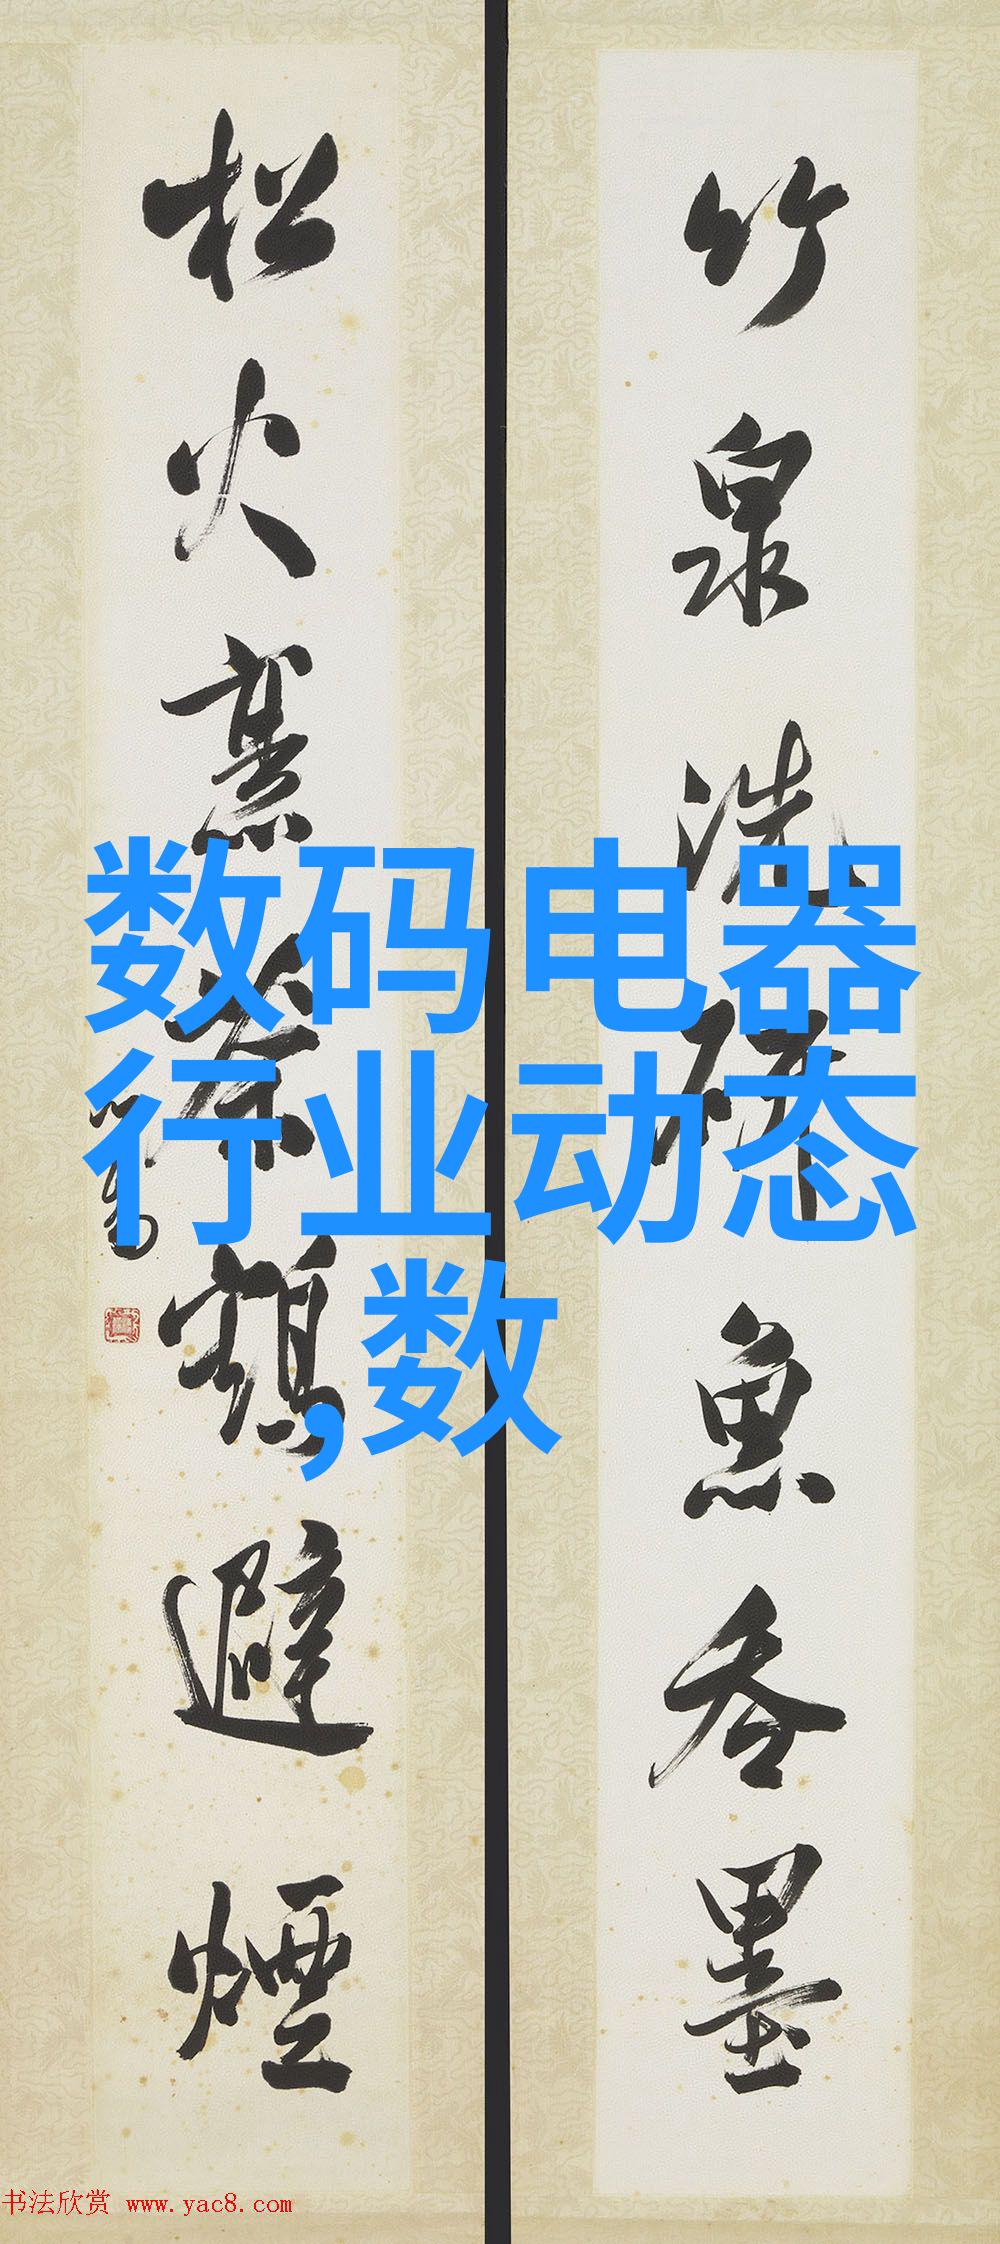 竹泉洗研魚吞墨
松火烹茶鶴避煙
数码电器
行业动态
,数
书法欣赏 www.yac8.com